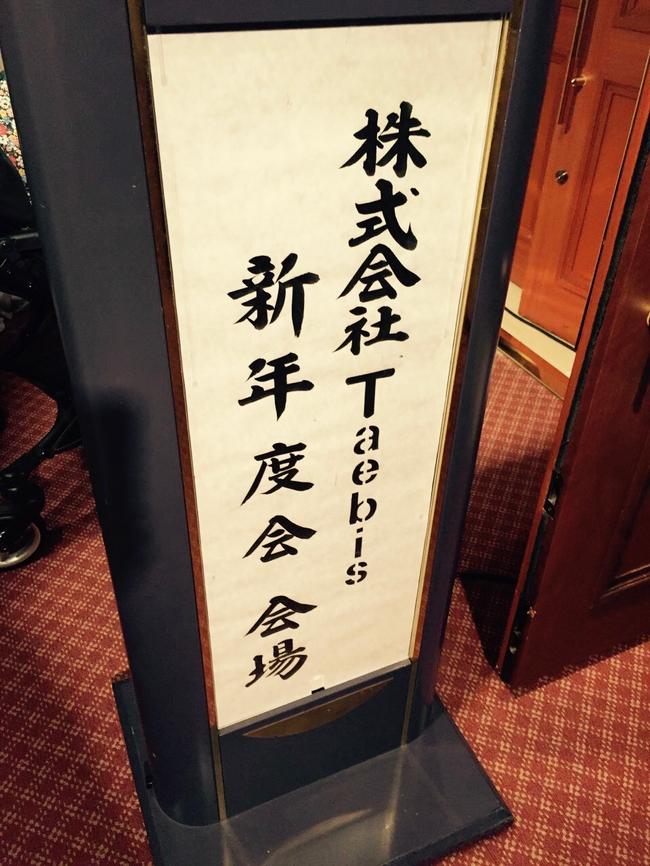 株式会社Taebis
新年度会 会場